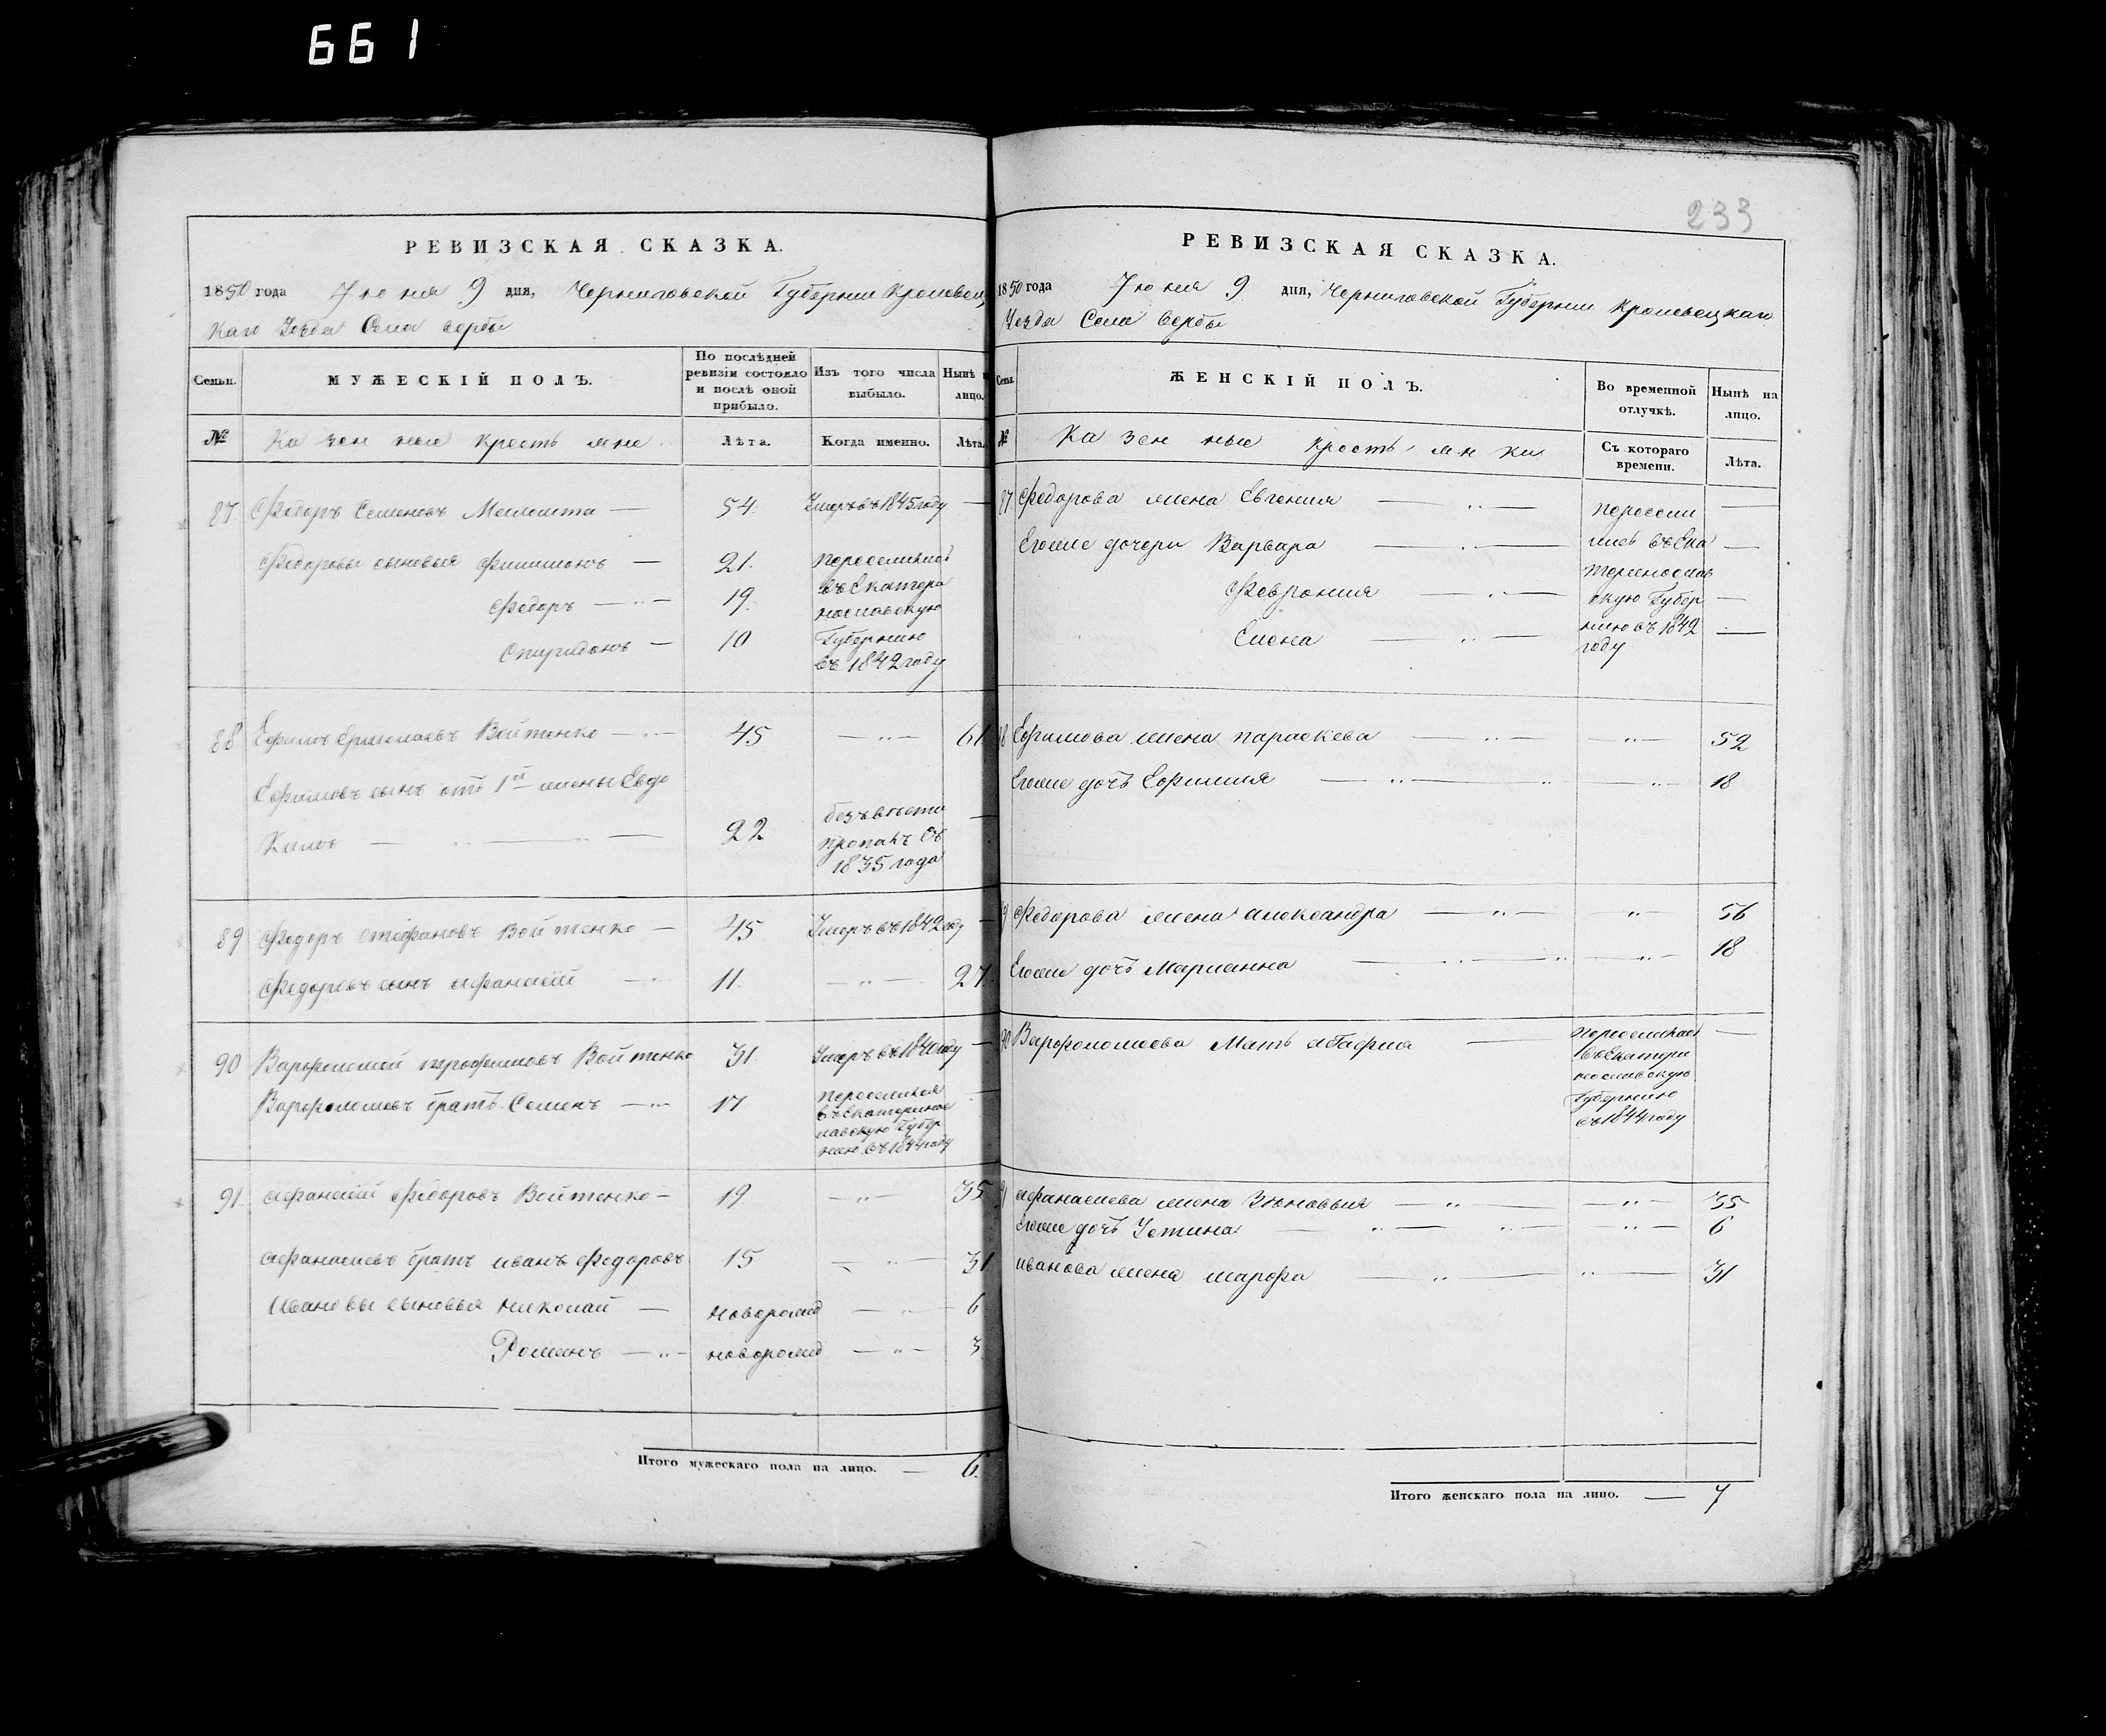 661
РЕВИЗСКАЯ СКАЗКА.
1850 года Іюня 9 дня, Черниговской Губернии Кролевец
каго Уезда Села Вербы
Семьи. МУЖЕСКІЙ ПОЛЪ. По послѣдней ревизіи состояло и послѣ оной прибыло. Изъ того числа выбыло. Нынѣ на лицо.
№ Казенные крестьяне Лѣта. Когда именно. Лѣта.
87 Федоръ Семеновъ 54. Умеръ въ 1845 году —
Федоровы сыновья Филимонъ — 21. переселились
Федоръ — 19. въ Екатери
нославскую
Спиридонъ — 10 Губернию
въ 1842 году
88 Ефимъ Ермолаевъ Войтенко — 45 — 61
Ефимовъ сынъ отъ 1й жены Евдо
кимъ — 22 безъвести —
пропалъ съ
1835 года
89 Федоръ Стефановъ Войтенко — 45 Умеръ въ 1842 году —
Федоровъ сынъ Афанасій — 11. — 27.
90 Варфоломей Трофимовъ Войтенко 31. Умеръ въ 1840 году —
Варфоломеевъ братъ Семенъ — 17 переселился —
въ Екатеринос
лавскую Губер
нию въ 1844 году
91. Афанасій Федоровъ Войтенко — 19. — 35
Афанасіевъ братъ Иванъ Федоровъ 15 — 31
Ивановы сыновья Николай — новорожд — 6
Романъ — новорожд — 3
Итого мужескаго пола на лицо. — 6.
233
РЕВИЗСКАЯ СКАЗКА.
1850 года Іюня 9 дня, Черниговской Губернии Кролевецкаго
Уезда Села Вербы
Семьи. ЖЕНСКІЙ ПОЛЪ. Во временной отлучкѣ. Нынѣ на лицо.
№ Казенные крестьянки Съ котораго времени. Лѣта.
87. Федорова жена Евгения — пересели —
Егоже дочери Варвара — лись въ Ека —
териносл
Феврония — скую Губер —
Елена — нию въ 1842 —
году
88 Ефимова жена Параскева — 52
Егоже дочь Ефимия — 18
89 Федорова жена Александра — 56
Егоже дочь Марианна — 18
90 Варфоломеева Мать Агафия — переселилась —
въ Екатери
нославскую
Губернию
въ 1844 году
91 Афанасиева жена Зѣновия — 35
Егоже дочь Устина — 6
Иванова жена Марфа — 31
Итого женскаго пола на лицо. — 7